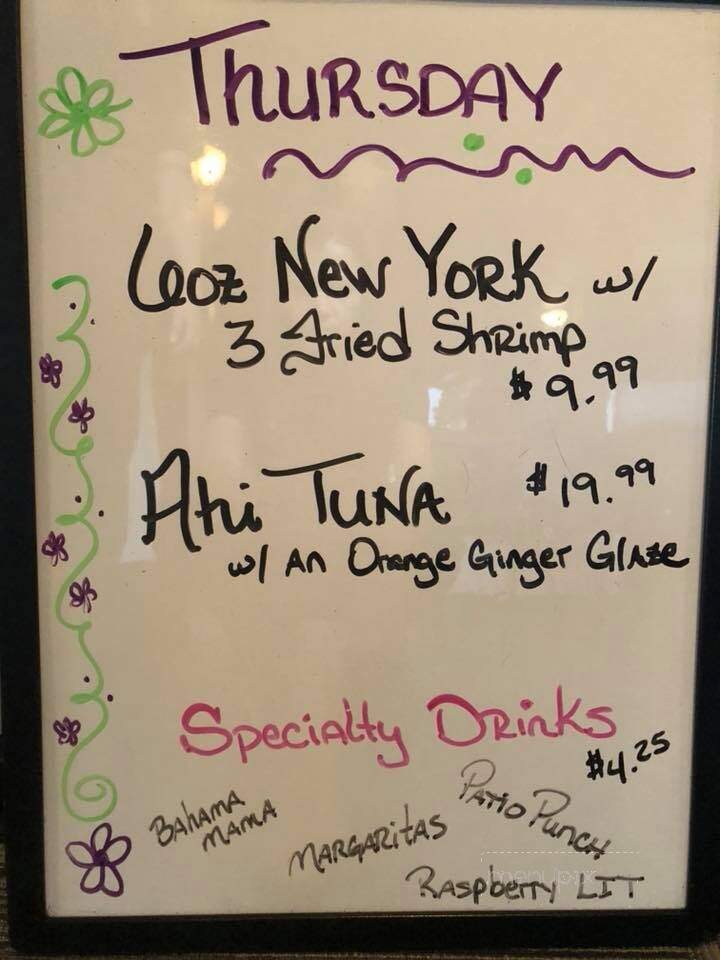 THURSDAY
6oz New York w/
3 Fried Shrimp
$9.99
Ahi Tuna $19.99
w/ An Orange Ginger Glaze
Specialty Drinks
$4.25
Bahama Mama
Margaritas
Patio Punch
Raspberry LIT
menupix